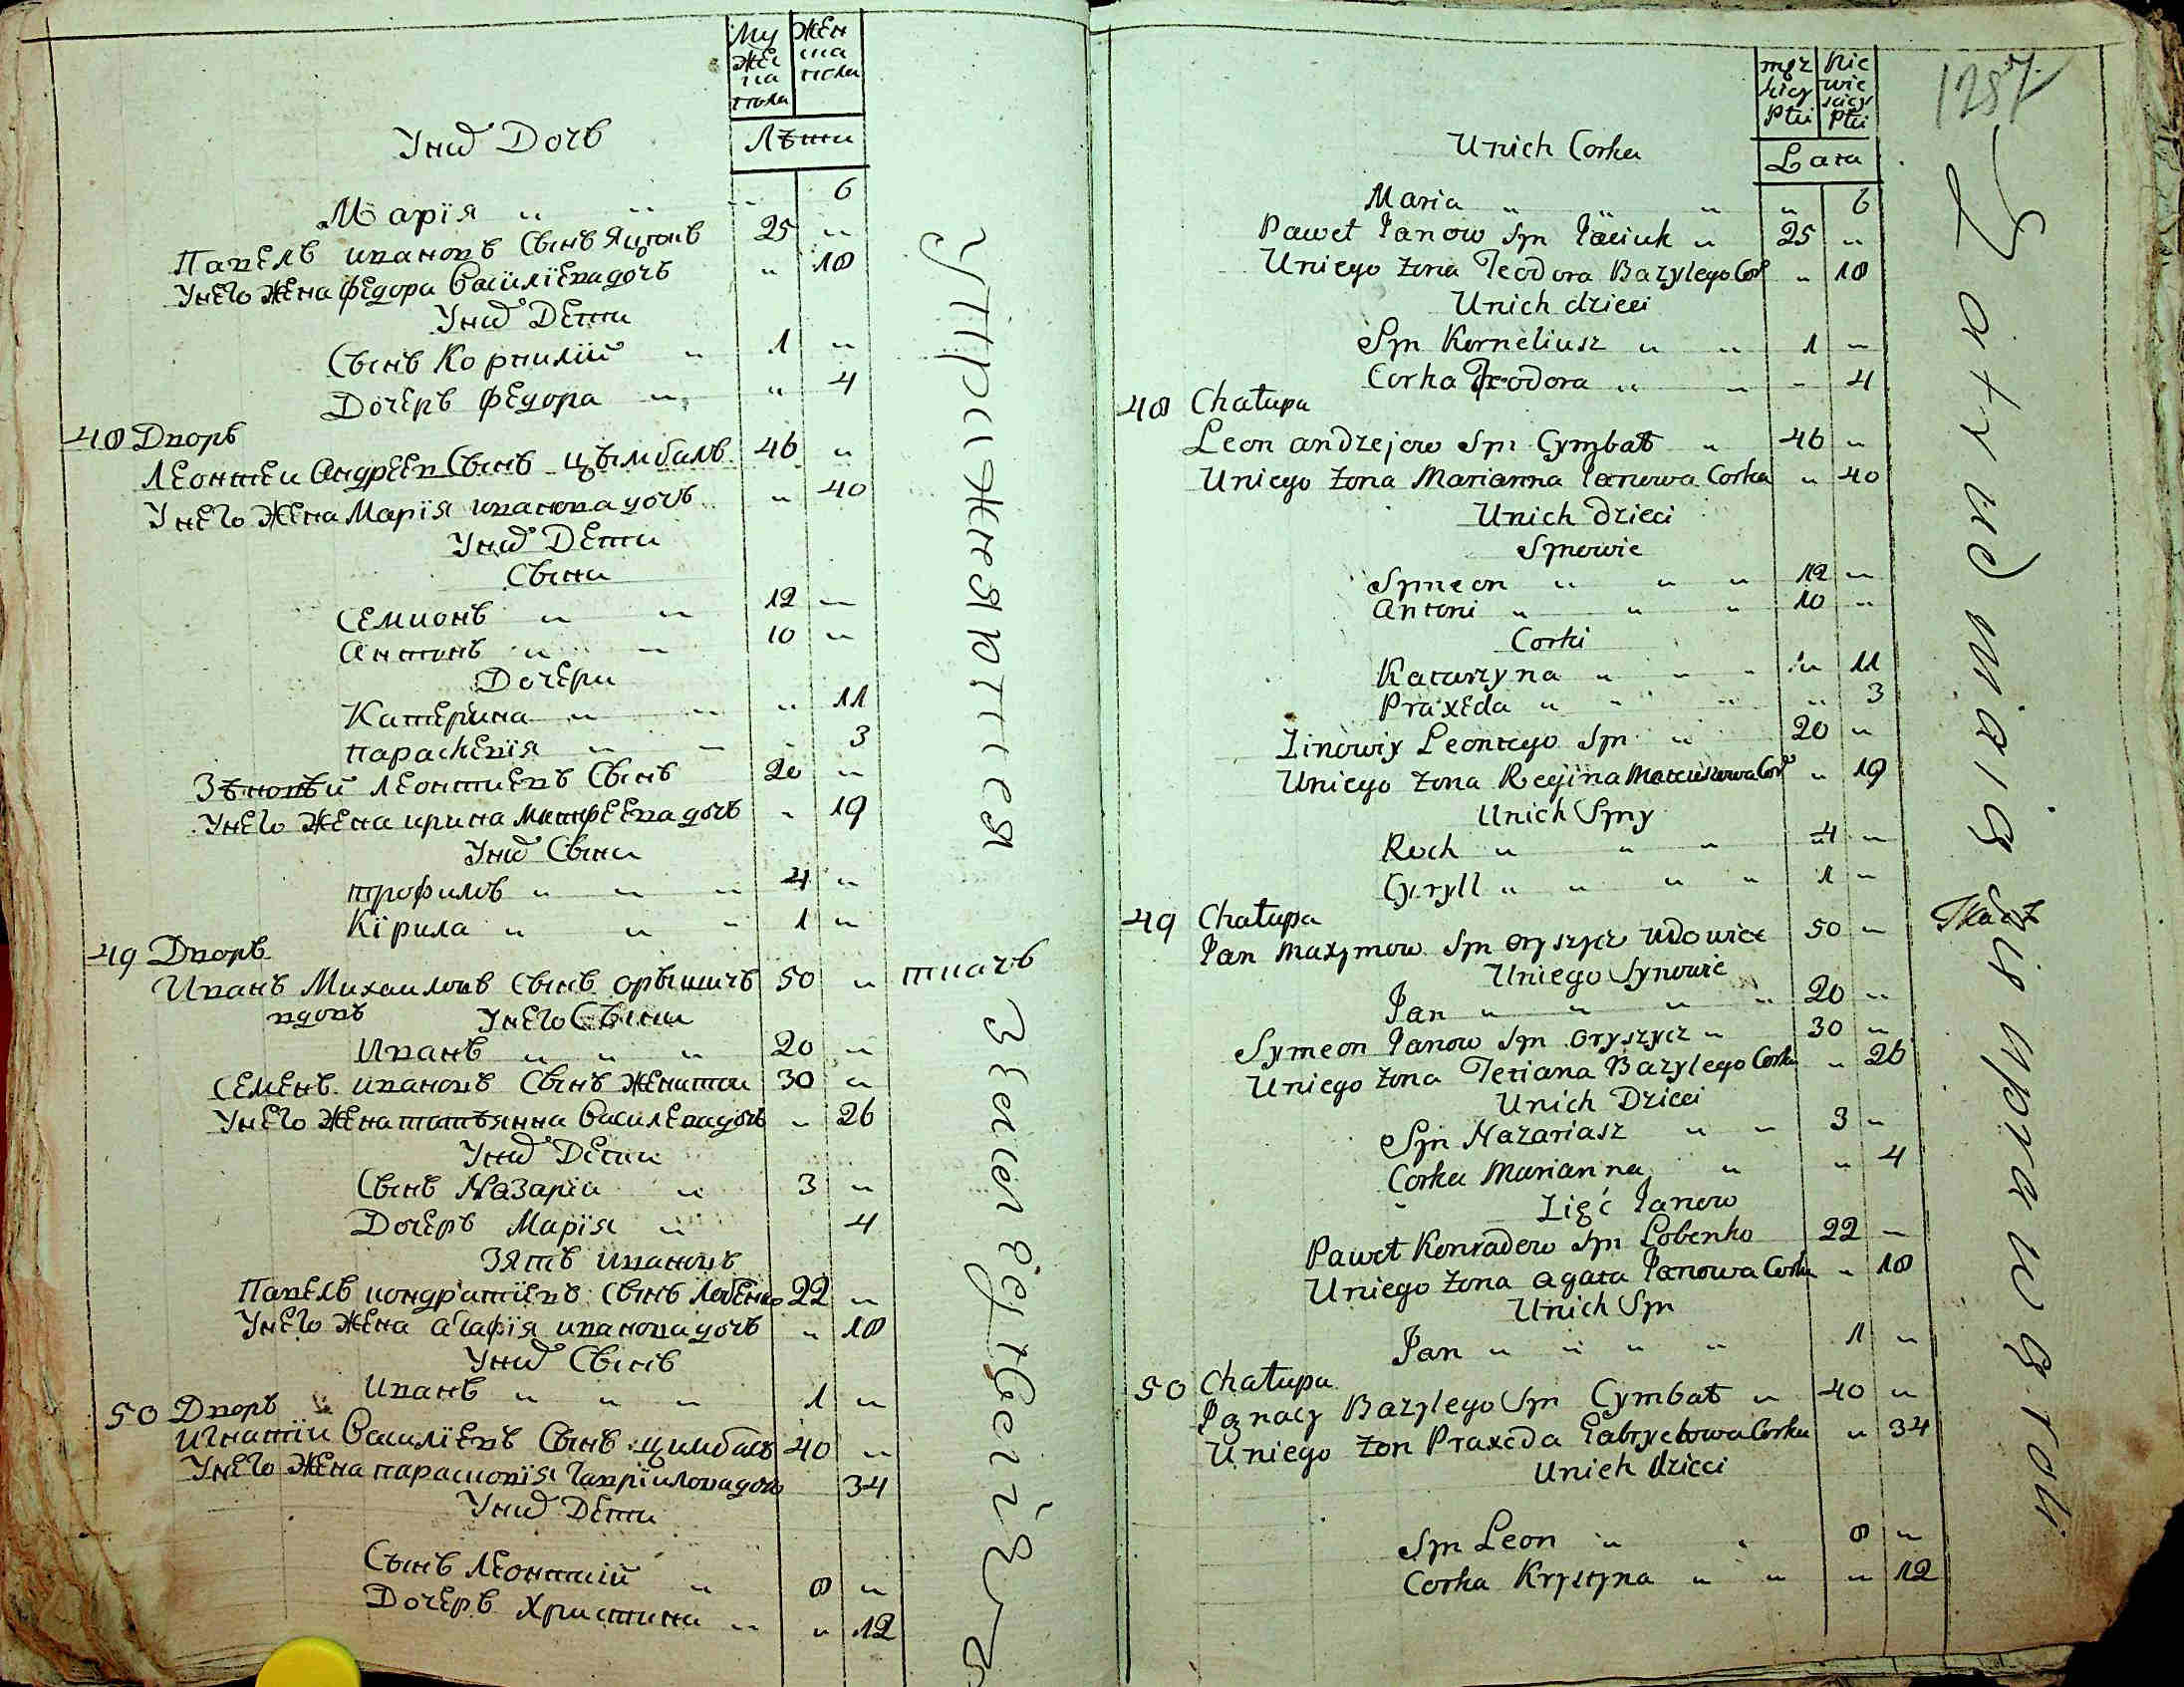 Му жес ка пола
Жен ска пола
Лѣти
У них Дочь
Марїя " " " 6
Павель ивановъ Сынъ Яцюкъ 25 "
У него жена Федора Василїева дочь " 18
У них Дети
Сынъ Корнилїй " 1 "
Дочерь Федора " " 4
48 Дворъ
Леонтей Андреев Сынъ цымбалъ 46 "
У него жена Марїя иванова дочь " 40
У них Дети
Сыни
Семионъ " " 12 "
Антонъ " " 10 "
Дочери
Катерина " " " 11
параскевїя " " " 3
Зѣновѣй Леонтиевъ Сынъ 20 "
У него жена ирина Матфеева дочь " 19
У них Сыни
трофимъ " " " 4 "
Кїрила " " " 1 "
49 Дворъ
Иванъ Михаиловъ Сынъ орышичъ 50 " ткачъ
вдовъ У него Сыни
Иванъ " " " 20 "
Семенъ ивановъ Сынъ женатой 30 "
У него жена татьянна Василева дочь " 26
У них Дети
Сынъ Назарїй " 3 "
Дочерь Марїя " 4
Зять ивановъ
Павелъ кондратїевъ Сынъ Лобенко 22 "
У него жена агафїя иванова дочь " 18
У них Сынъ
Иванъ " " " 1 "
50 Дворъ
Игнатїй Василїевъ Сынъ цимбалъ 40 "
У него жена парасковїя Гаврїилова дочь 34
У них Дети
Сынъ Леонтїй " 8 "
Дочерь Христина " " 12
упражняются
męz kiey Płci
Nie wie sciey Płci
Lata
Unich Corka
Maria " " " 6
Paweł Janow Syn Jaciuk " 25 "
Uniego żona Teodora Bazylego Cor " 18
Unich dzieci
Syn Korneliusz " " 1 "
Corka Teodora " " " 4
48 Chałupa
Leon andrzejow Syn Cymbał " 46 "
Uniego żona Marianna Janowa Corka " 40
Unich Dzieci
Synowie
Symeon " " " 12 "
Antoni " " " 10 "
Corki
Katarzyna " " " " 11
Praxeda " " " " 3
Zinowiy Leontego Syn " 20 "
Uniego żona Regina Mateuszowa Cor " 19
Unich Syny
Roch " " " 4 "
Cyryll " " " " 1 "
49 Chałupa
Jan Maxymow Syn Oryszycz Wdowiec 50 " Tkacz
Uniego Synowie
Jan " " " " 20 "
Symeon Janow Syn Oryszycz " 30 "
Uniego żona Tetiana Bazylego Corka " 26
Unich Dzieci
Syn Nazariasz " " 3 "
Corka Marianna " " 4
Zięć Janow
Paweł Konradow Syn Lobenko 22 "
Uniego żona Agata Janowa Corka " 18
Unich Syn
Jan " " " " 1 "
50 Chałupa
Ignacy Bazylego Syn Cymbał " 40 "
Uniego żon Praxeda Gabryelowa Corka " 34
Unich dzieci
Syn Leon " " 8 "
Corka Krystyna " " " 12